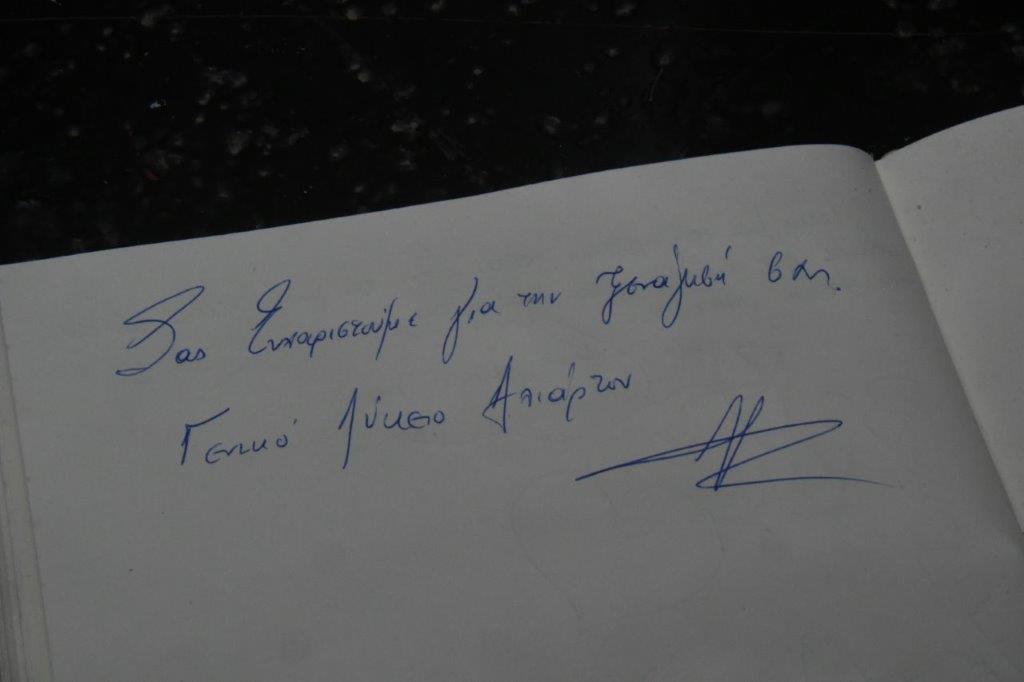 Σας Ευχαριστούμε για την ξεναγησή σας.
Γενικό Λύκειο Αλιάρτου